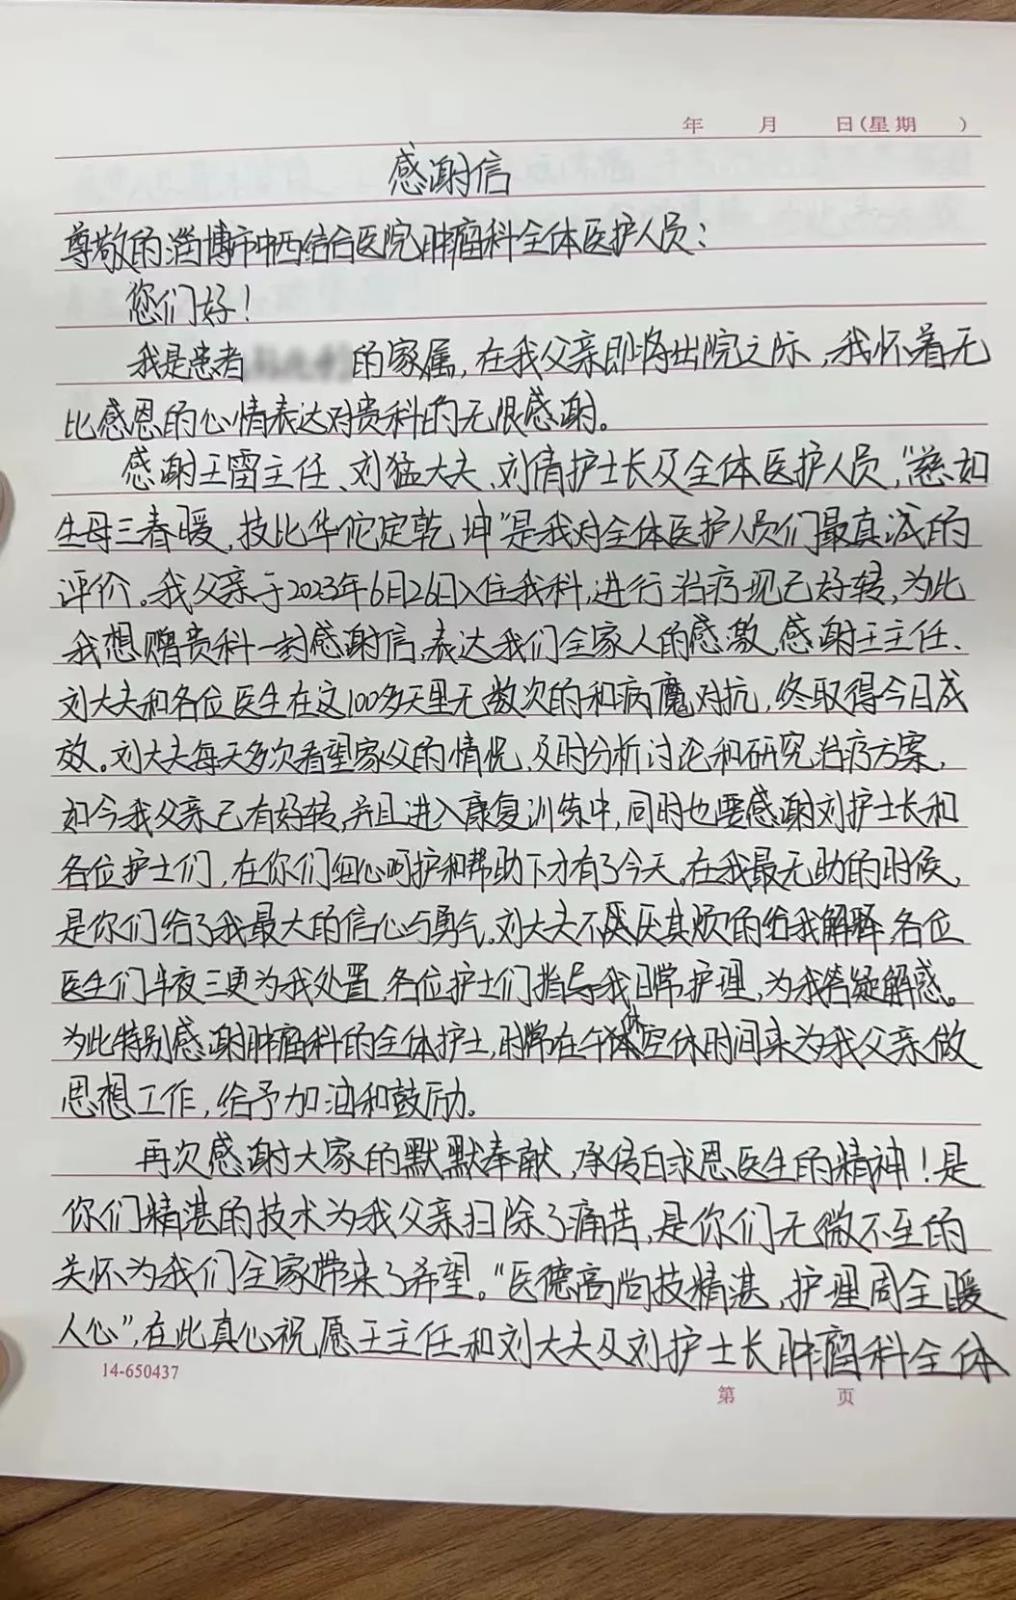 年 月 日(星期 )
感谢信
尊敬的淄博市中西结合医院肿瘤科全体医护人员：
您们好！
我是患者 的家属，在我父亲即将出院之际，我怀着无
比感恩的心情表达对贵科的无限感谢。
感谢王雷主任、刘猛大夫、刘倩护士长及全体医护人员，“慈如
生母三春暖，技比华佗定乾坤”是我对全体医护人员们最真诚的
评价。我父亲于2023年6月26日入住我科，进行治疗现已好转，为此
我想赠贵科一封感谢信，表达我们全家人的感激，感谢王主任、
刘大夫和各位医生在这100多天里无数次的和病魔对抗，终取得今日成
效。刘大夫每天多次看望家父的情况，及时分析讨论和研究治疗方案，
如今我父亲已有好转，并且进入康复训练中，同时也要感谢刘护士长和
各位护士们，在你们细心呵护和帮助下才有了今天。在我最无助的时候，
是你们给了我最大的信心与勇气。刘大夫不厌其烦的给我解释，各位
医生们半夜三更为我处置，各位护士们指导我日常护理，为我答疑解惑。
为此特别感谢肿瘤科的全体护士，时常在午休空休时间来为我父亲做
思想工作，给予加油和鼓励。
再次感谢大家的默默奉献，承传白求恩医生的精神！是
你们精湛的技术为我父亲扫除了痛苦，是你们无微不至的
关怀为我们全家带来了希望。“医德高尚技精湛，护理周全暖
人心”，在此真心祝愿王主任和刘大夫及刘护士长肿瘤科全体
14-650437
第 页